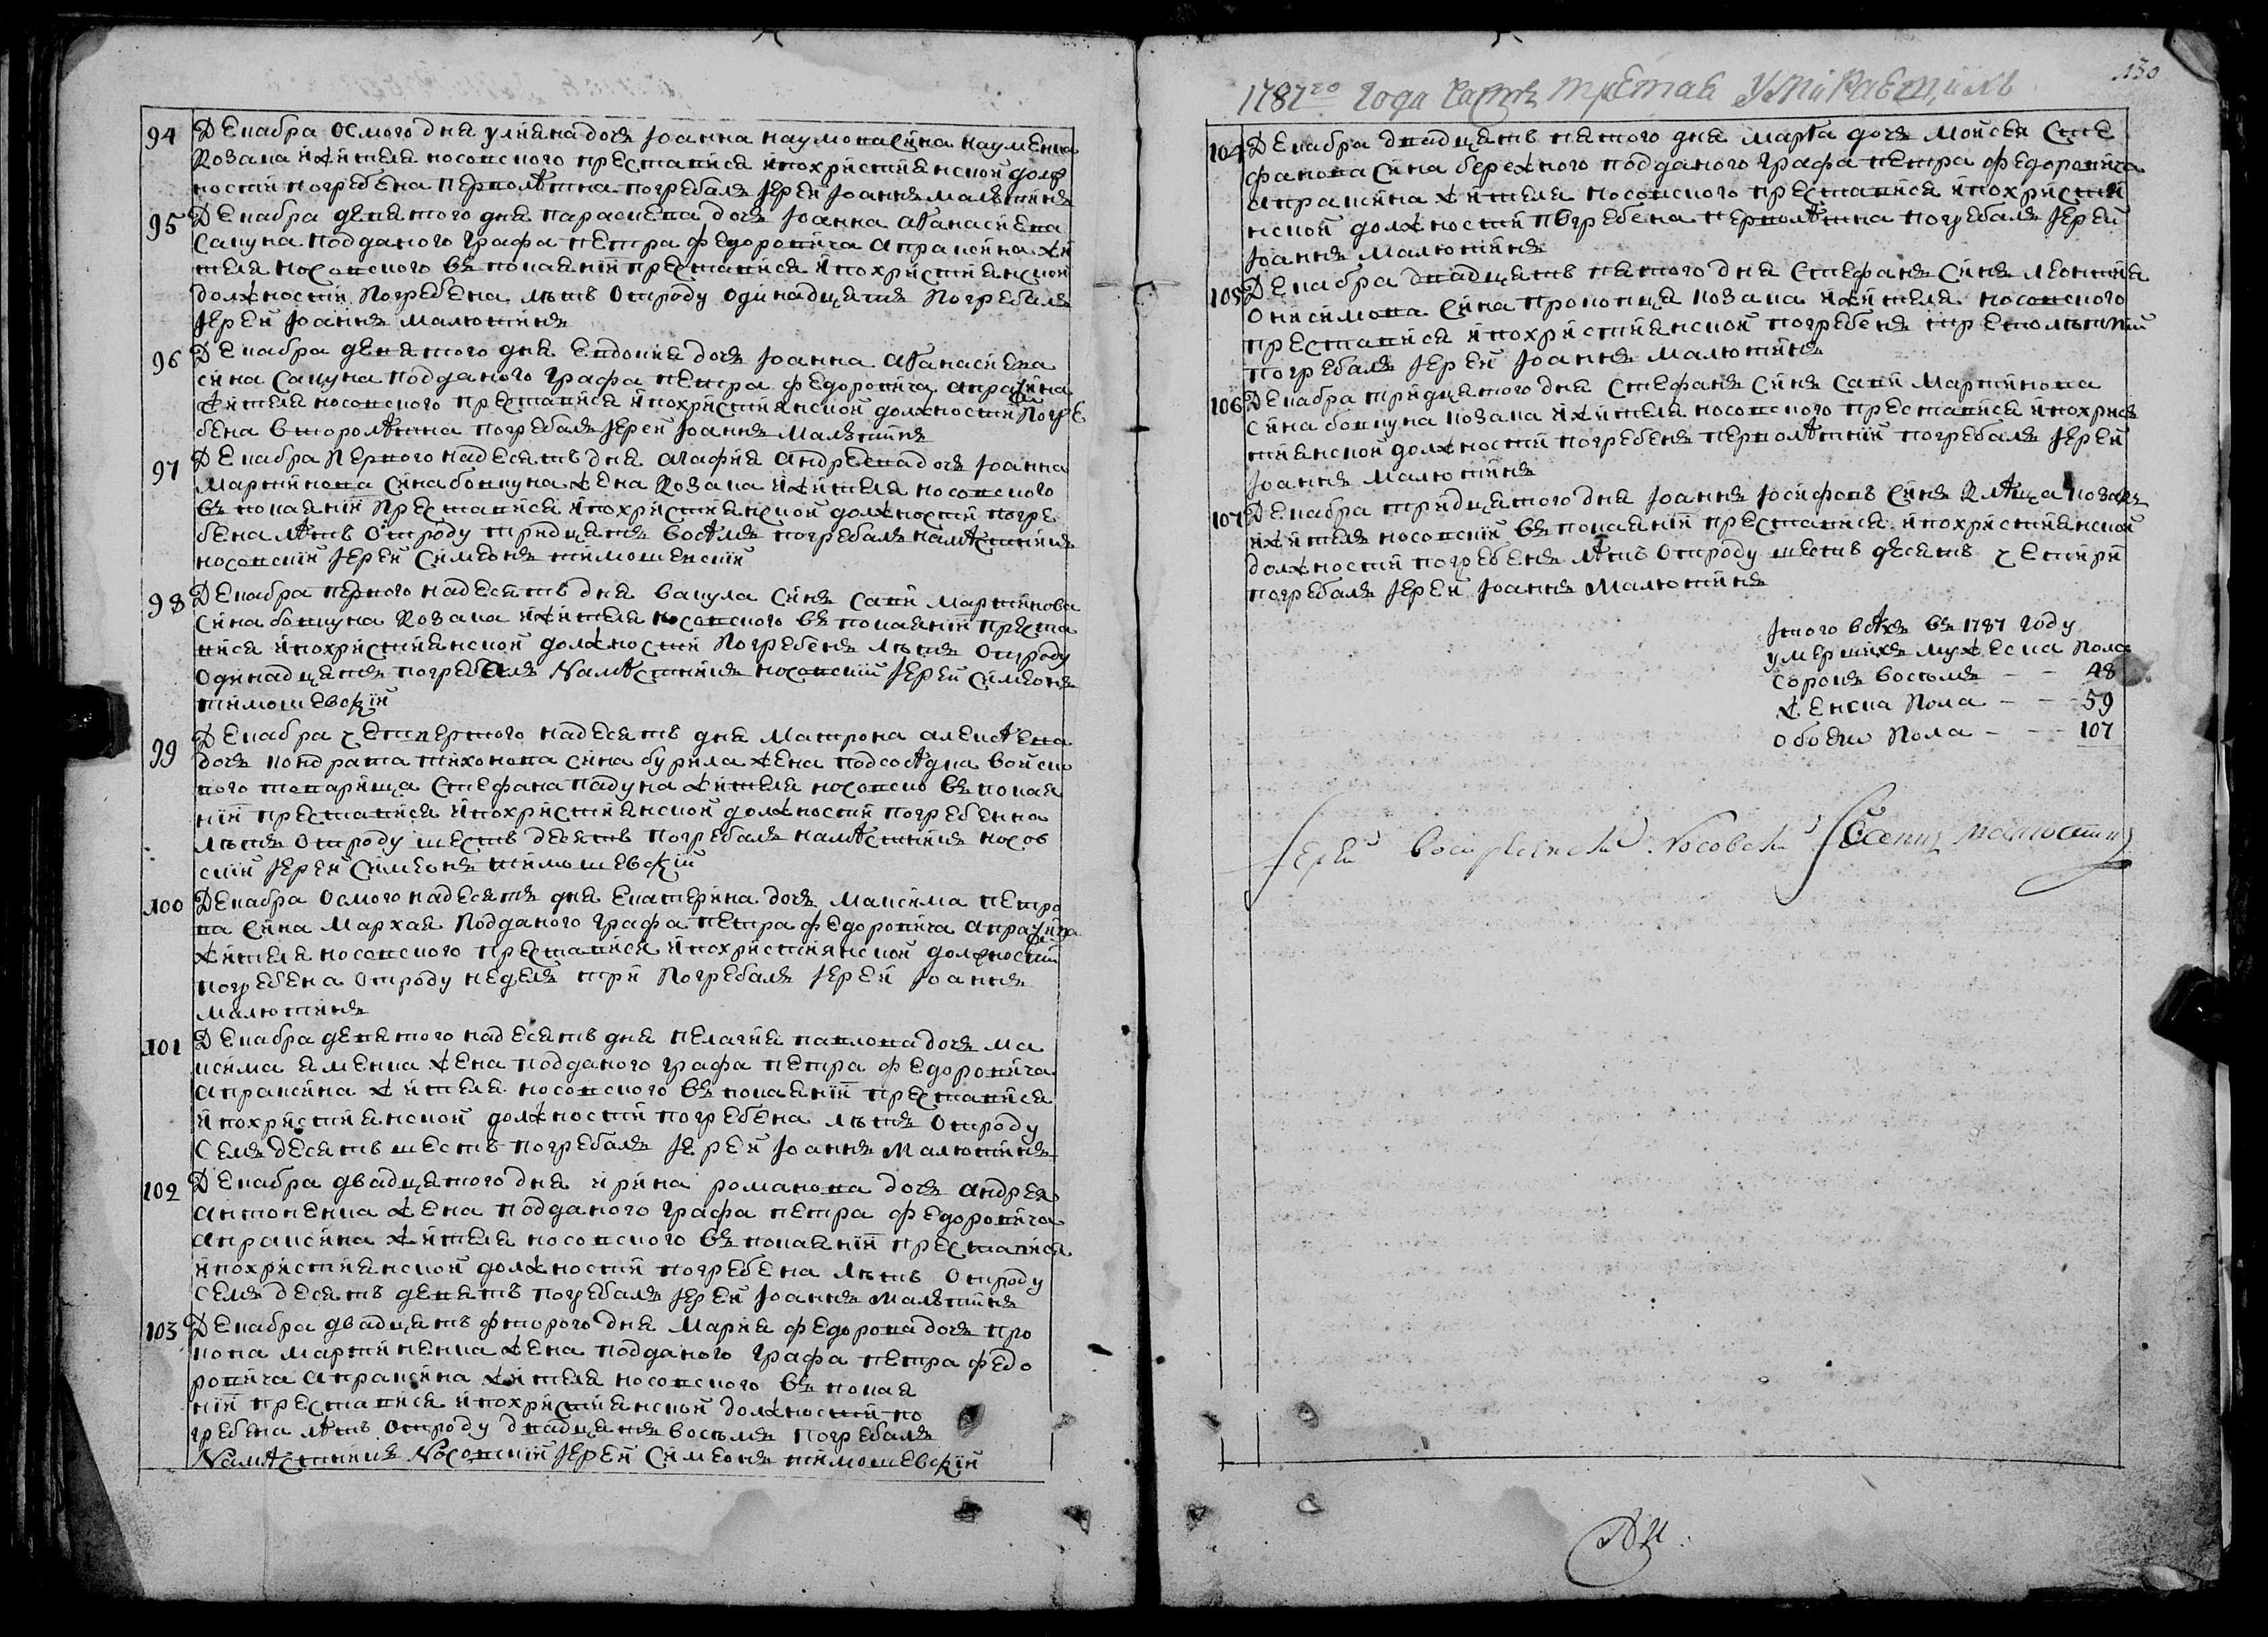 94 Декабра осмого дня улияна дочь Іоанна наумова сина науменка
козака и жителя носовского преставися и по християнской долж
ности погребена перволѣтна погребалъ Іерей Іоаннъ Малютинъ
95 Декабра девятого дня параскева дочь Іоанна аѳанасиева
сапуна подданого графа петра федоровича апраксина жи
теля носовского въ покаянiи преставися и по християнской
должности погребена лѣтъ отроду одинадцять погребалъ
Іерей Іоаннъ Малютинъ
96 Декабра девятого дня евдокия дочь Іоанна аѳанасиева
сина сапуна подданого графа петра федоровича апраксина
жителя носовского преставися и по християнской должности погре
бена второлѣтна погребалъ Іерей Іоаннъ Малютинъ
97 Декабра первого надесять дня агафия андреева дочь Іоанна
Мартинова сина бовкуна жена козака и жителя носовского
въ покаянiи преставися и по християнской должности погре
бена лѣтъ отроду тридцять восѣмъ погребалъ намѣстникъ
носовскiй Іерей Симеонъ тимошевскiй
98 Декабра первого надесять дня вакула синъ сави Мартинова
сина бовкуна козака и жителя носовского въ покаянiи преста
вися и по християнской должности погребенъ лѣтъ отроду
одинадцять погребалъ намѣстникъ носовскiй Іерей Симеонъ
тимошевскiй
99 Декабра четвертого надесять дня Матрона алексѣева
дочь кондрата тихонова сина бурила жена подсосѣдка войско
вого товарища стефана падука жителя носовско въ покая
нiи преставися и по християнской должности погребенна
лѣтъ отроду шестъ десятъ погребалъ намѣстникъ носов
скiй Іерей Симеонъ тимошевскiй
100 Декабра осмого надесять дня екатерина дочь максима петро
ва сина Мархая подданого графа петра федоровича апраксина
жителя носовского преставися и по християнской должности
погребена отроду недель три погребалъ Іерей Іоаннъ
Малютинъ
101 Декабра девятого надесять дня пелагия павлова дочь ма
ксима яменка жена подданого графа петра федоровича
апраксина жителя носовского въ покаянiи преставися
и по християнской должности погребена лѣтъ отроду
семъ десятъ шестъ погребалъ Іерей Іоаннъ Малютинъ
102 Декабра двадцятого дня ирина романова дочь андрея
антоненка жена подданого графа петра федоровича
апраксина жителя носовского въ покаянiи преставися
и по християнской должности погребена лѣтъ отроду
семъ десятъ девятъ погребалъ Іерей Іоаннъ Малютинъ
103 Декабра двадцять фторого дня Мария федорова дочь про
копа мартиненка жена подданого графа петра федо
ровича апраксина жителя носовского въ покая
нiи преставися и по християнской должности по
гребена лѣтъ отроду двадцять восьмъ погребалъ
Намѣстникъ Носовскiй Іерей Симеонъ тимошевскiй
1787го года часть третая умiраещихъ
130
104 Декабра двадцять пятого дня марѳа дочь Мойсея сте
фанова сина бережного подданого графа петра федоровича
апраксина жителя носовского преставися и по христия
нской должности погребена перволѣтна погребалъ Іерей
Іоаннъ Малютинъ
105 Декабра двадцять пятого дня стефанъ синъ леонтия
онисимова сина прокопца козака и жителя носовского
преставися и по християнской погребенъ третолѣтнiй
погребалъ Іерей Іоаннъ Малютинъ
106 Декабра тридцятого дня стефанъ синъ сави Мартинова
сина бовкуна козака и жителя носовского преставися и по хрис
тиянской должности погребенъ перволѣтнiй погребалъ Іерей
Іоаннъ Малютинъ
107 Декабра тридцятого дня Іоаннъ Іосифовъ синъ козакъ
и житель носовскiй въ покаянiи преставися и по християнской
должности погребенъ лѣтъ отроду шестъ десятъ четири
погребалъ Іерей Іоаннъ Малютинъ
Iтого всѣхъ въ 1787 году
умершихъ мужеска пола
сорокъ восьмъ - - 48
женска пола - - 59
обоего пола - - 107
Іерей Воскресенскiй Носовскiй Іоаннъ Малютинъ